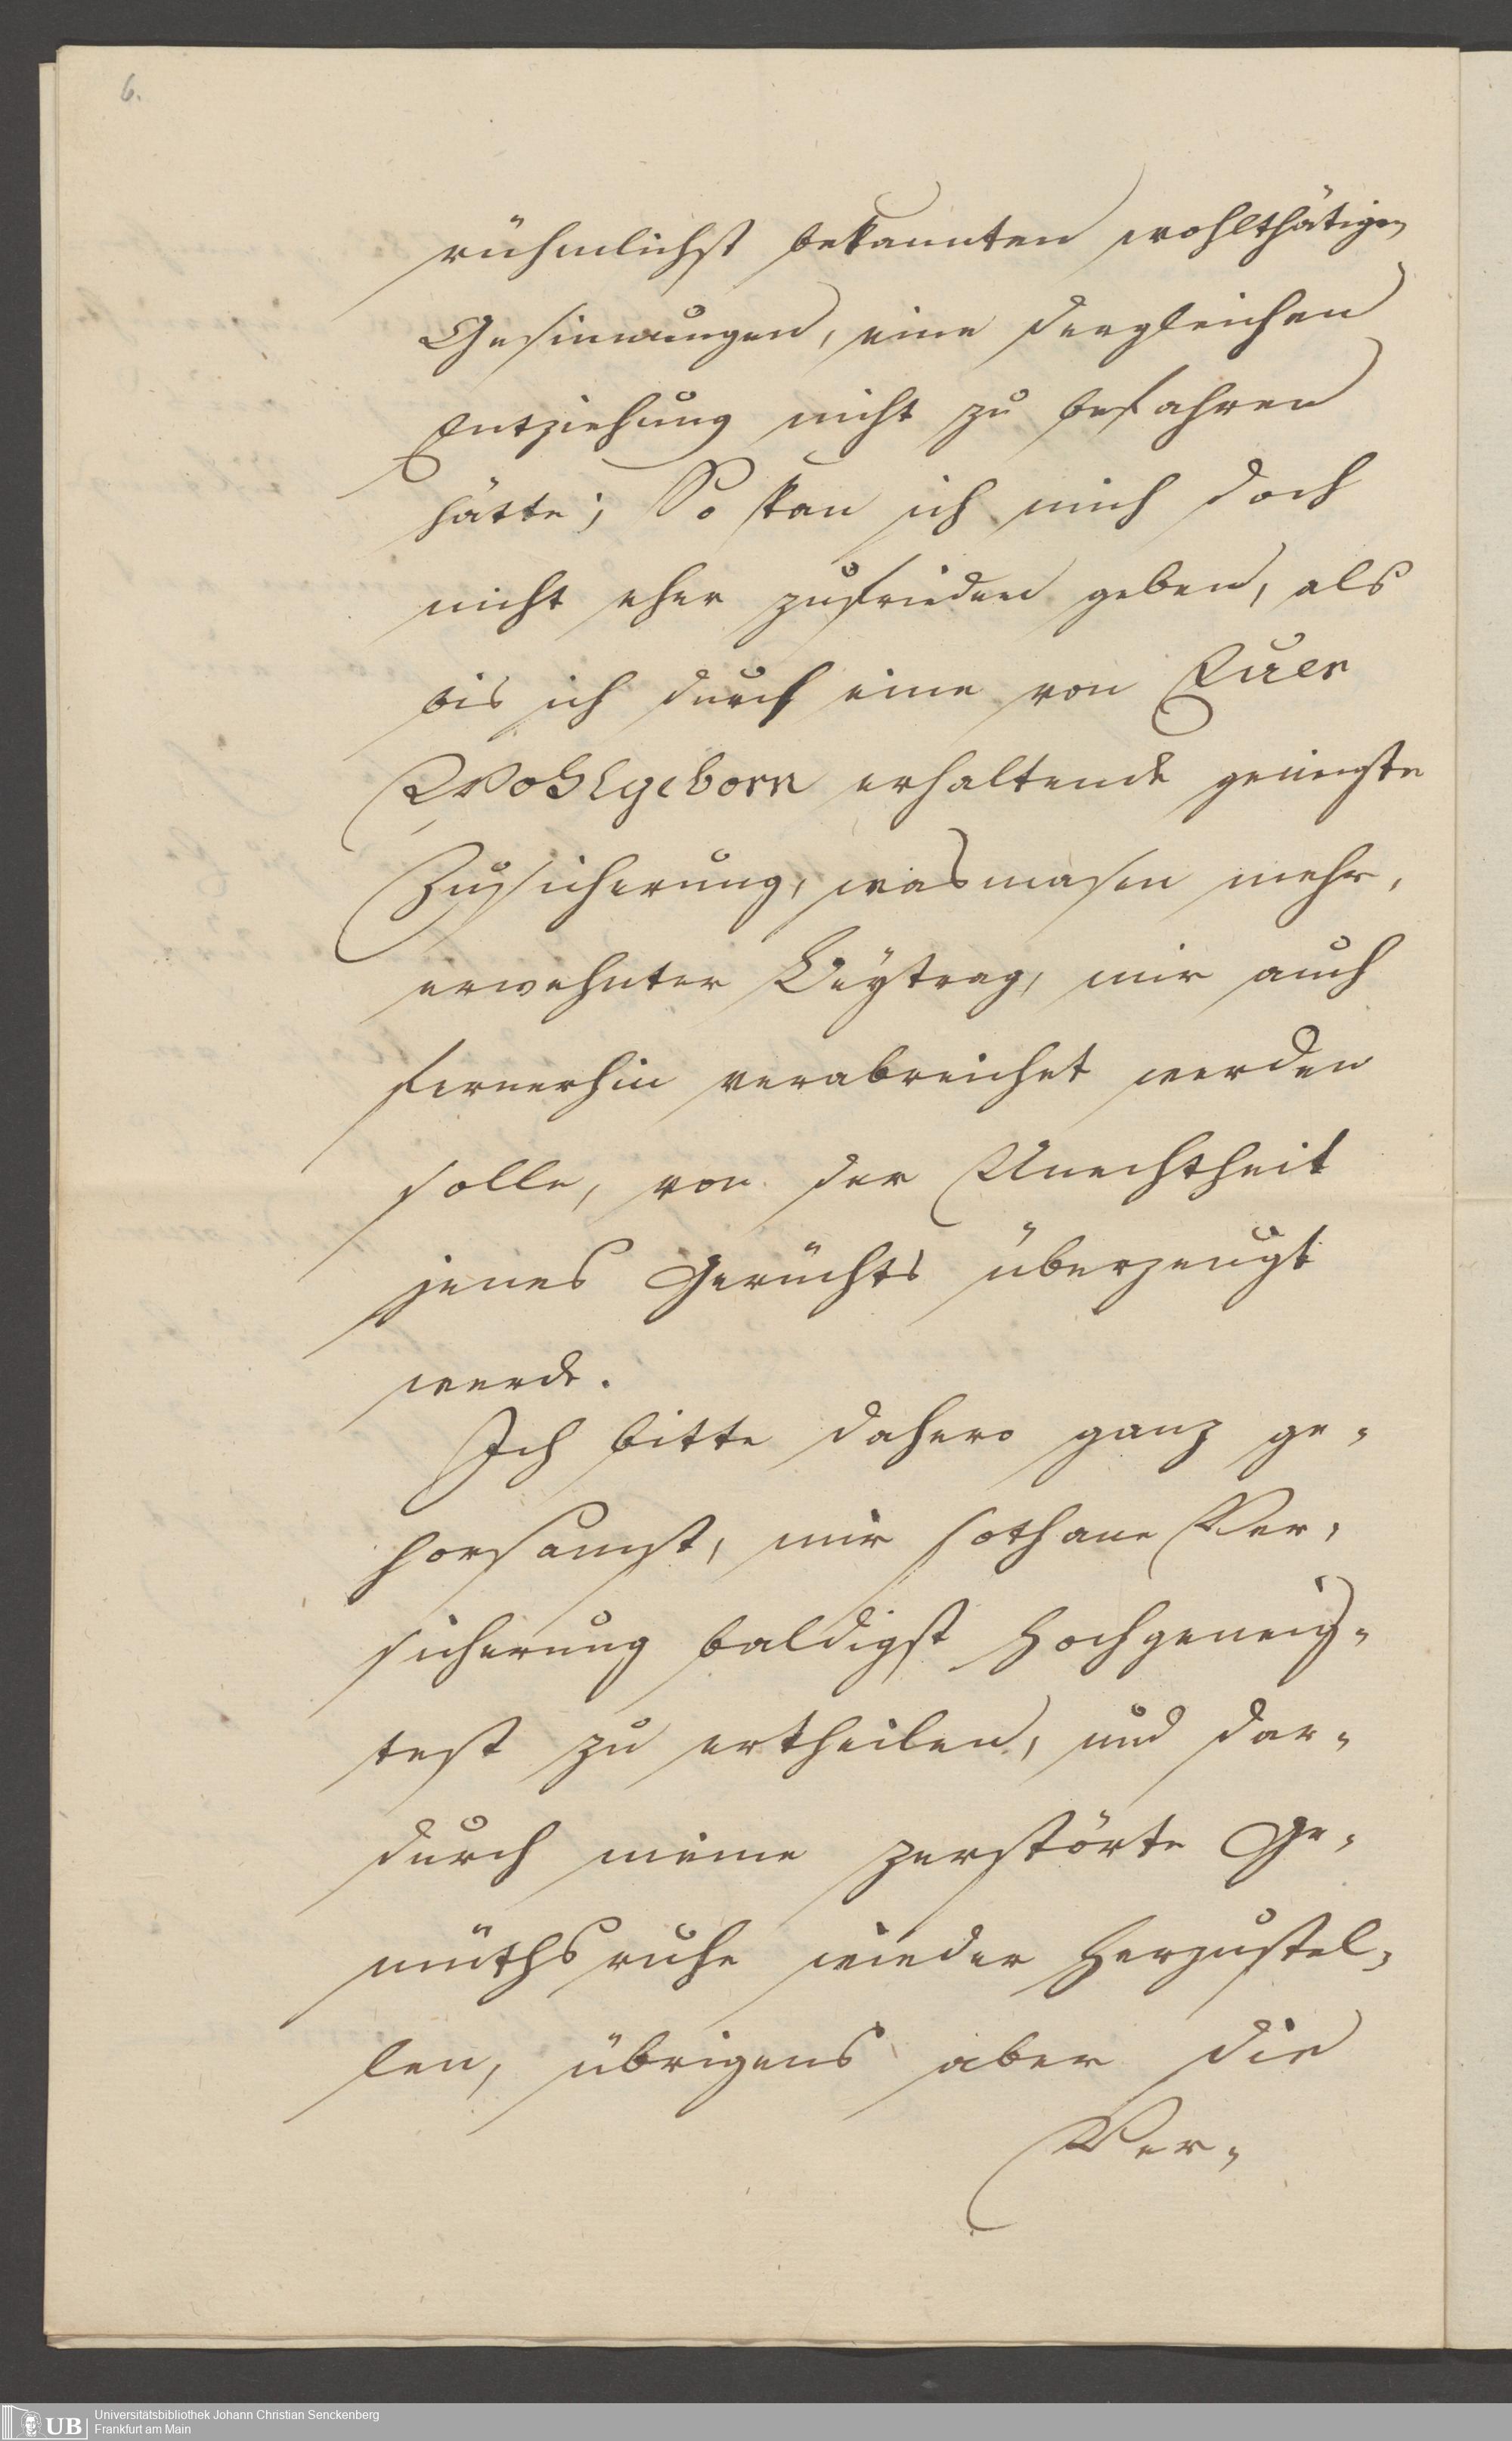 6.
rühmlichst bekannten wohlthätigen
Gesinnungen, eine dergleichen
Entziehung nicht zu befahren
hätte; So kan ich mich doch
nicht eher zufrieden geben, als
bis ich durch eine von Euer
Wohlgeborn erhaltende geneigte
Zusicherung, wasmasen mehr,
erwehnter Beytrag, mir auch
fernerhin verabreichet werden
solle, von der Unechtheit
jenes Gerüchts überzeugt
werde.
Ich bitte dahero ganz ge-
horsamst, mir sothane Ver-
sicherung baldigst Hochgeneig-
test zu ertheilen, und dar-
durch meine zerstörte Ge-
müthsruhe wieder herzustel-
len, übrigens aber die
Ver-
UB
Universitätsbibliothek Johann Christian Senckenberg
Frankfurt am Main